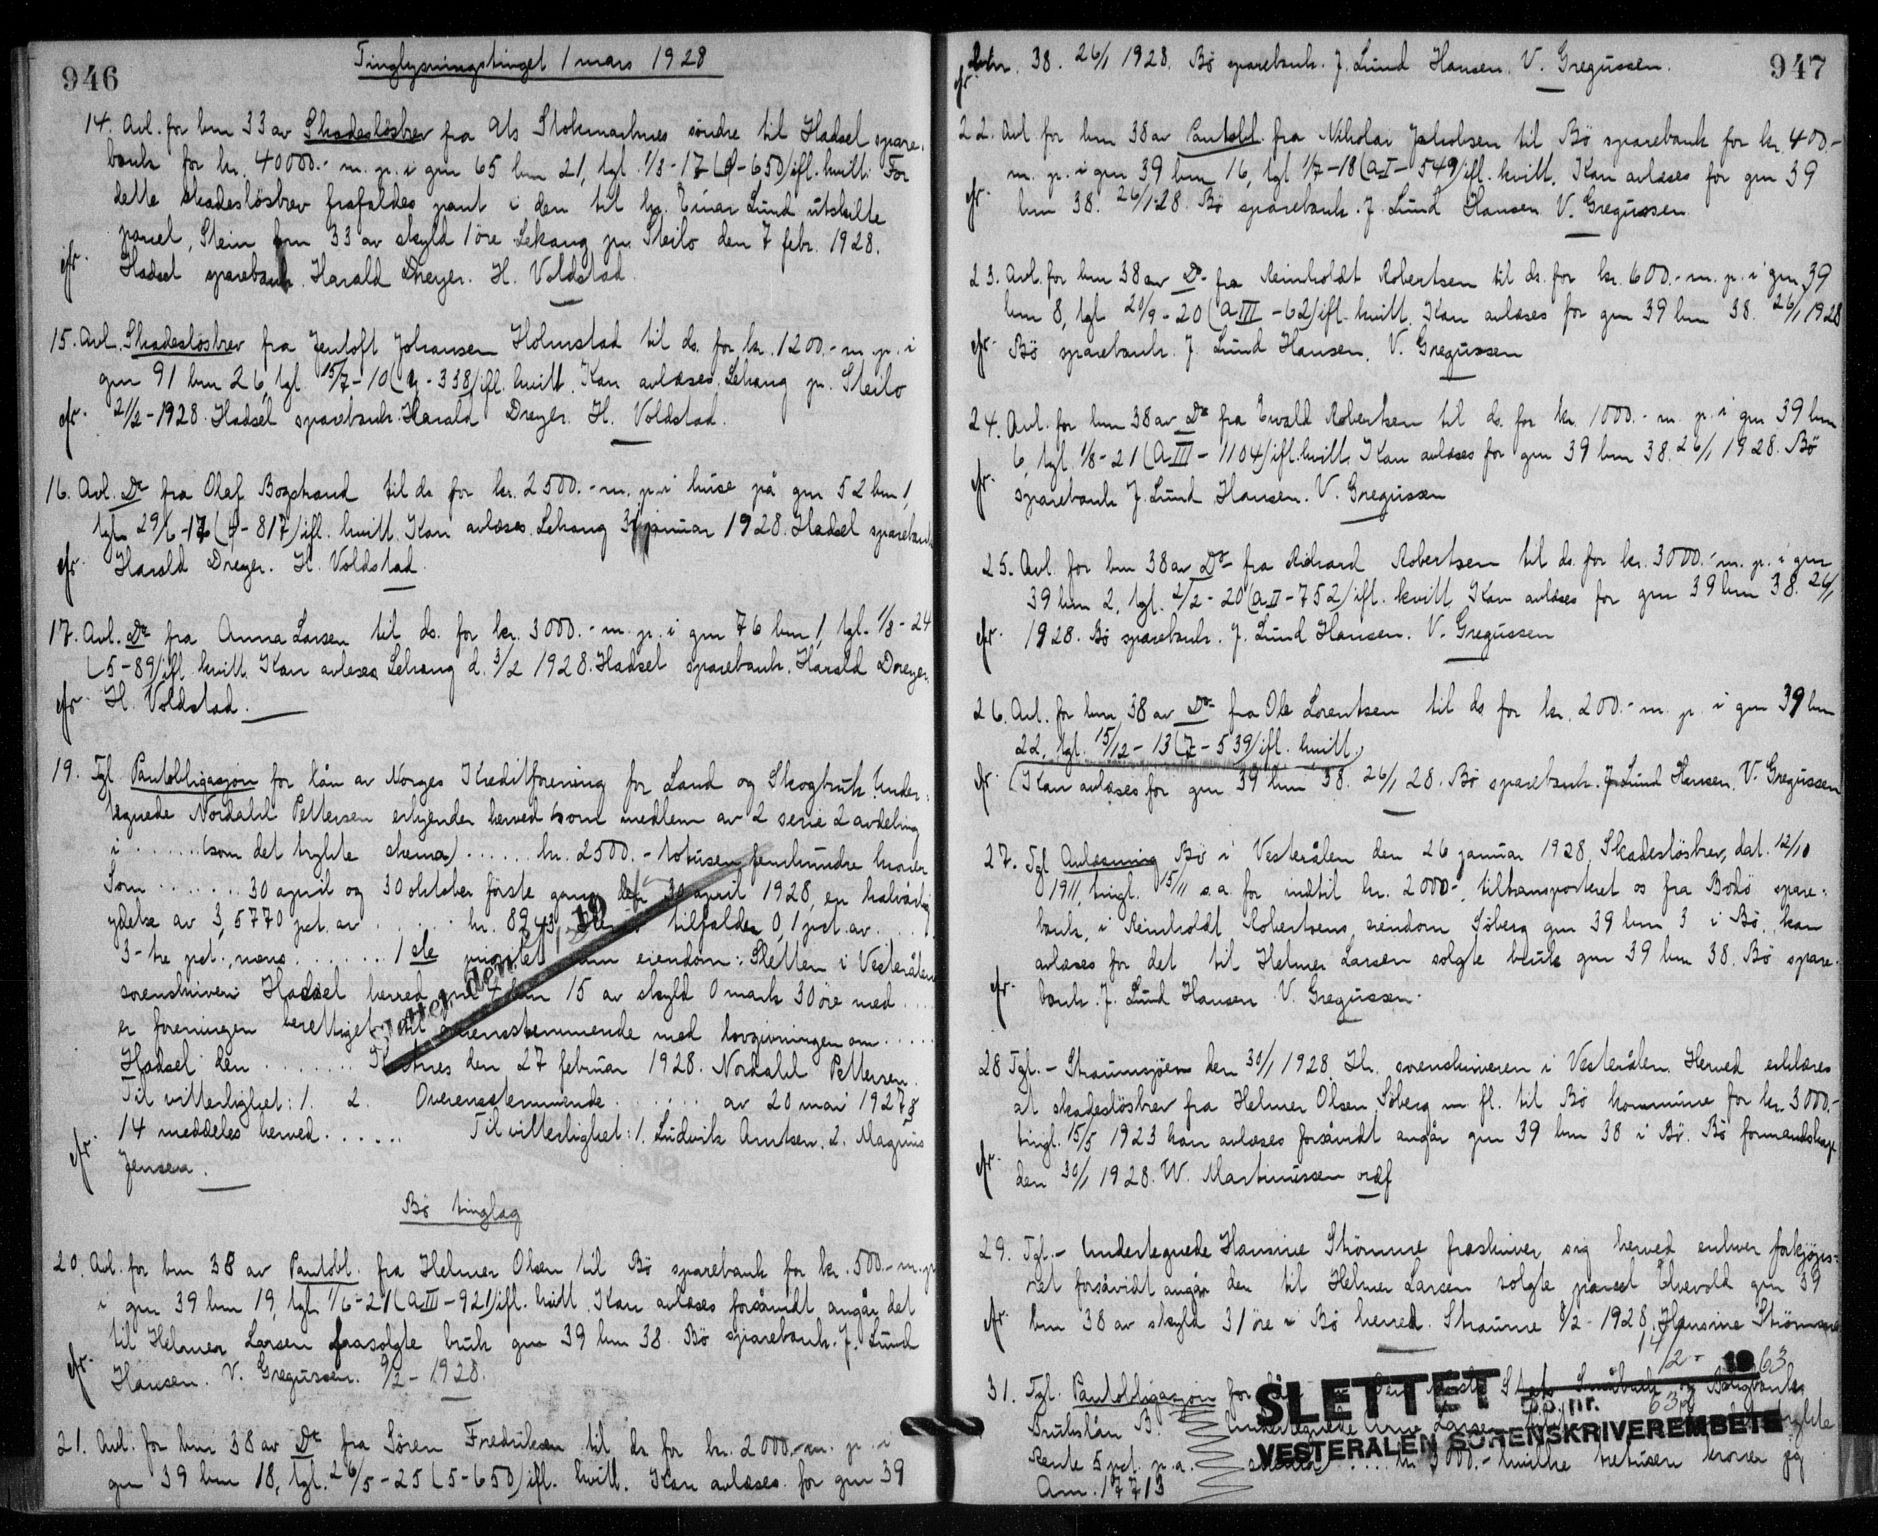 946
Tinglysningstinget 1 mars 1928
14. Avl. for bnr 33 av Skadesløsbrev fra A/s Stokmarknes søndre til Hadsel spare-
bank for kr. 40000.- m. p. i gnr 65 bnr 21, tgl. 1/8-17 ( -650) ifl. kvitt. For
dette skadesløsbrev frafaldes pant i den til hr. Einar Lund utskilte
parcel, Stein bnr 33 av skyld 1 øre Lekang pr. Steilo den 7 febr. 1928.
Hadsel sparebank. Harald Dreyer. H. Voldstad.
15. Avl. Skadesløsbrev fra Jentoft Johansen Holmstad til ds. for kr. 1200.- m. p. i
gnr 91 bnr 26, tgl. 15/7-10 ( -338) ifl. kvitt. Kan avlæses. Lekang pr. Steilo
21/2-1928. Hadsel sparebank Harald Dreyer. H. Voldstad.
16. Avl. Do fra Olaf Bogstrand til ds for kr. 2500.- m. p. i huse på gnr 52 bnr 1,
tgl. 29/6-17 ( -817) ifl. kvitt. Kan avlæses. Lekang 31 januar 1928. Hadsel sparebank
Harald Dreyer. H. Voldstad.
17. Avl. Do fra Anna Larsen til ds. for kr. 3000.- m. p. i gnr 76 bnr 1, tgl. 1/8-24
(5-89) ifl. kvitt. Kan avleses Lekang d. 3/2 1928. Hadsel sparebank. Harald Dreyer.
H. Voldstad.
19. Tgl Pantobligasjon for lån av Norges Kreditforening for Land og Skogbruk. Under-
tegnede Nordahl Pettersen erkjender herved (som medlem av 2 serie 2 avdeling
i ....... (som det trykte skema) ...... kr. 2500.- totusen femhundre kroner
Som ....... 30 april og 30 oktober første gang den 30 april 1928, en halvårlig
ydelse av 3,5770 pct. av ..... kr. 89,43, tilfalder 0,1 pct. av ....
3-tre pct., mens ....... 1 ste prioritet eiendom: Sletten i Vesterålen
sorenskriveri Hadsel herred gnr bnr 15 av skyld 0 mark 30 øre med ....
er foreningen berettiget til overensstemmende med lovgivningen om .....
Hadsel den ........ den 27 februar 1928. Nordahl Pettersen.
Til vitterlighet: 1. 2. Overensstemmende ...... av 20 mai 1927 §
14 meddeles herved ...... Til vitterlighet: 1. Ludvik Arntsen. 2. Magnus
Jensen.
Bø tinglag
20. Avl. for bnr 38 av Pantobl. fra Helmer Olsen til Bø sparebank for kr. 500.- m. p.
i gnr 39 bnr 19, tgl. 1/6-21 (A III-921) ifl. kvitt. Kan avlæses forsåvidt angår det
til Helmer Larsen frasolgte bruk gnr 39 bnr 38. Bø sparebank. J. Lund
Hansen. V. Gregussen. 9/2-1928.
21. Avl. for bnr 38 av Do fra Søren Fredriksen til ds. for kr. 2000.- m. p. i
gnr 39 bnr 18, tgl. 26/5-25 (5-650) ifl. kvitt. Kan avlæses for gnr 39
947
bnr. 38. 26/1 1928. Bø sparebank. J. Lund Hansen. V. Gregussen.
22. Avl for bnr 38 av Pantobl. fra Nikolai Jakobsen til Bø sparebank for kr. 400.-
m. p. i gnr 39 bnr 16, tgl 1/7-18 (A I-549) ifl. kvitt. Kan avlæses for gnr 39
bnr 38. 26/1 28. Bø sparebank. J. Lund Hansen V. Gregussen
23. Avl. for bnr 38 av Do fra Reinholdt Robertsen til ds. for kr. 600.- m. p. i gnr 39
bnr 8, tgl 20/9-20 (A III-62) ifl. kvitt. Kan avlæses for gnr 39 bnr 38. 26/1 1928
Bø sparebank. J. Lund Hansen. V. Gregussen
24. Avl. for bnr 38 av Do fra Evald Robertsen til ds. for kr. 1000.- m. p. i gnr 39 bnr
6, tgl. 1/8-21 (A III-1104) ifl. kvitt. Kan avlæses for gnr 39 bnr 38. 26/1 1928. Bø
sparebank J. Lund Hansen. V. Gregussen
25. Avl. for bnr 38 av Do fra Richard Robertsen til ds. for kr. 3000.- m. p. i gnr
39 bnr 2, tgl. 2/2-20 (A II-752) ifl. kvitt. Kan avlæses for gnr 39 bnr 38. 26/1
1928. Bø sparebank. J. Lund Hansen. V. Gregussen
26. Avl. for bnr 38 av Do fra Ole Lorentsen til ds for kr. 200.- m. p. i gnr 39 bnr
22, tgl. 15/12-13 (7-539) ifl. kvitt.
(Kan avlæses for gnr 39 bnr 38. 26/1 28. Bø sparebank. J. Lund Hansen. V. Gregussen
27. Tgl Avlæsning Bø i Vesterålen den 26 januar 1928. Skadesløsbrev, dat. 12/10
1911, tingl. 15/11 s.a. for indtil kr. 2000.-, tiltransporteret os fra Bodø spare-
bank, i Reinholdt Robertsens eiendom Søberg gnr 39 bnr 3 i Bø, kan
avlæses for det til Helmer Larsen solgte bruk gnr 39 bnr 38. Bø spare-
bank. J. Lund Hansen V. Gregussen.
28 Tgl. - Straumsjøen den 30/1 1928. Hr. sorenskriveren i Vesterålen. Herved erklæres
at skadesløsbrev fra Helmer Olsen Søberg m. fl. til Bø kommune for kr. 3000.-
tingl. 15/5 1923 kan avlæses forsåvidt angår gnr 39 bnr 38 i Bø. Bø formandskap
den 30/1 1928. W. Martinussen ordf
29. Tgl. - Undertegnede Hansine Strømme fraskriver sig herved enhver forkjøps-
ret forsåvidt angår den til Helmer Larsen solgte parcel Elvevold gnr 39
bnr 38 av skyld 31 øre i Bø herred. Straume 8/2-1928. Hansine Strømme
14/2- 19 63
31. Tgl. Pantobligasjon for lån Den Norske Stats Småbruk og Boligbank
SLETTET Db. nr. 63
Brukslån B. Undertegnede Larsen trykte
VESTERÅLEN SORENSKRIVEREMBETE
Rente 5 pct. p. a. skema) .... kr 3000.- tretusen kroner jeg
Am. 17713